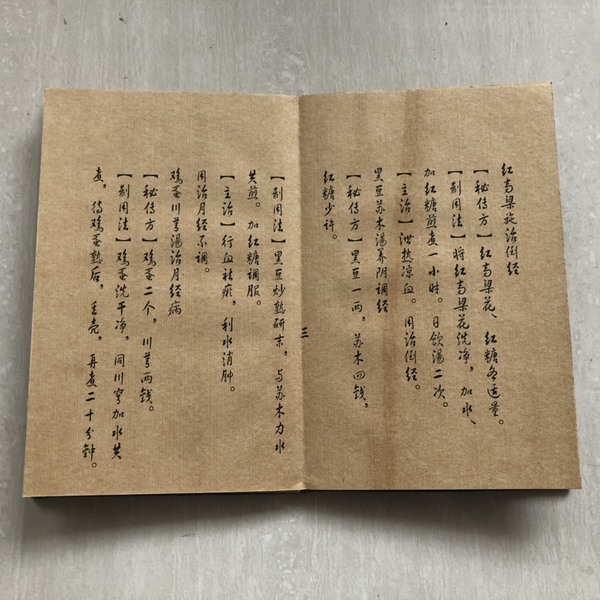 红高梁花治倒经
【秘传方】红高梁花、红糖各适量。
【制用法】将红高梁花洗净，加水、
加红糖煎煮一小时。日饮汤二次。
【主治】泄热凉血。用治倒经。
黑豆苏木汤养阴调经
【秘传方】黑豆一两，苏木四钱，
红糖少许。
三
【制用法】黑豆炒熟研末，与苏木力水
共煎。加红糖调服。
【主治】行血祛瘀，利水消肿。
用治月经不调。
鸡蛋川芎汤治月经病
【秘传方】鸡蛋二个，川芎两钱。
【制用法】鸡蛋洗干净，同川穹加水共
煮，待鸡蛋熟后，去壳，再煮二十分钟。